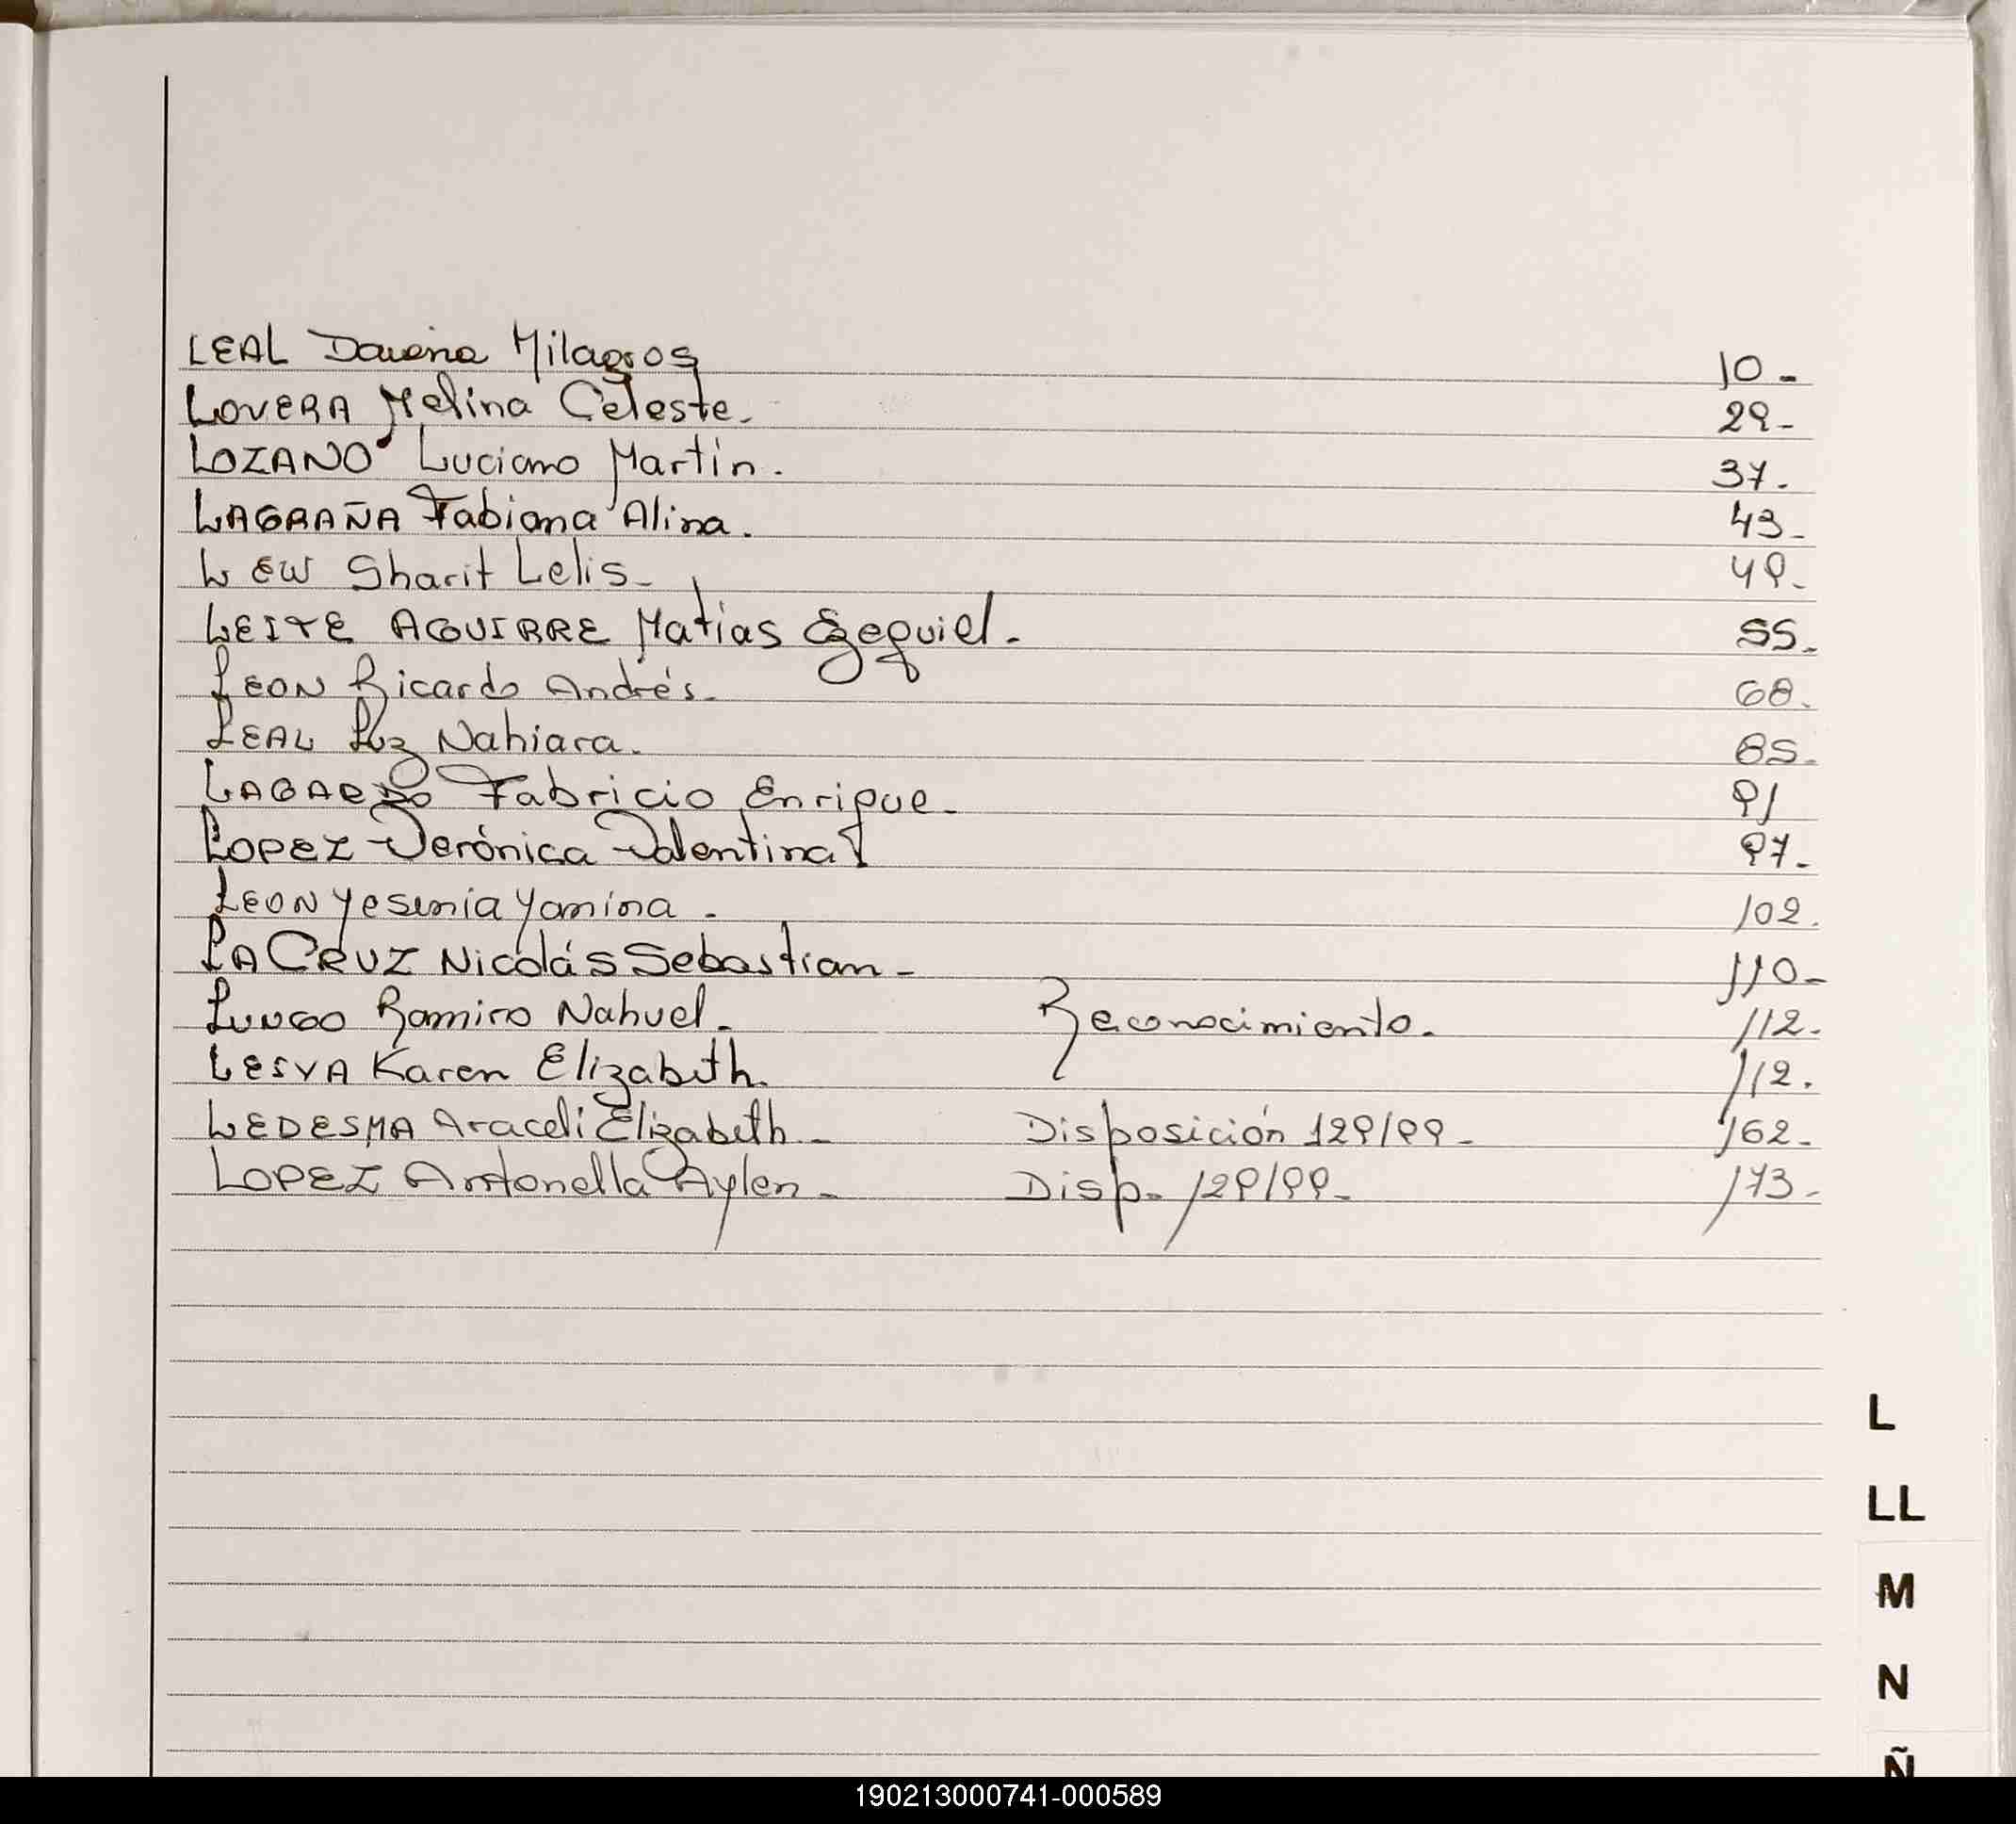 LEAL Daiana Milagros 10-
LOVERA Melina Celeste. 29-
LOZANO Luciano Martín. 37.
LAGRAÑA Fabiana Alina. 43-
LEW Sharit Lelis- 49-
LEITE AGUIRRE Matías Ezequiel. 55-
LEON Ricardo Andrés. 68.
LEAL Luz Nahiara. 85.
Fabricio Enrique- 91
LOPEZ Verónica Valentina 97-
LEON Yesenia Yamina. 102.
LA CRUZ Nicolás Sebastian- 110-
Ramiro Nahuel. Reconocimiento. 112.
Karen Elizabeth. 112.
LEDESMA Araceli Elizabeth- Disposición 129/99- 162-
LOPEZ Antonella Aylen- Disp. 129/99- 173-
L
LL
M
N
Ñ
190213000741-000589